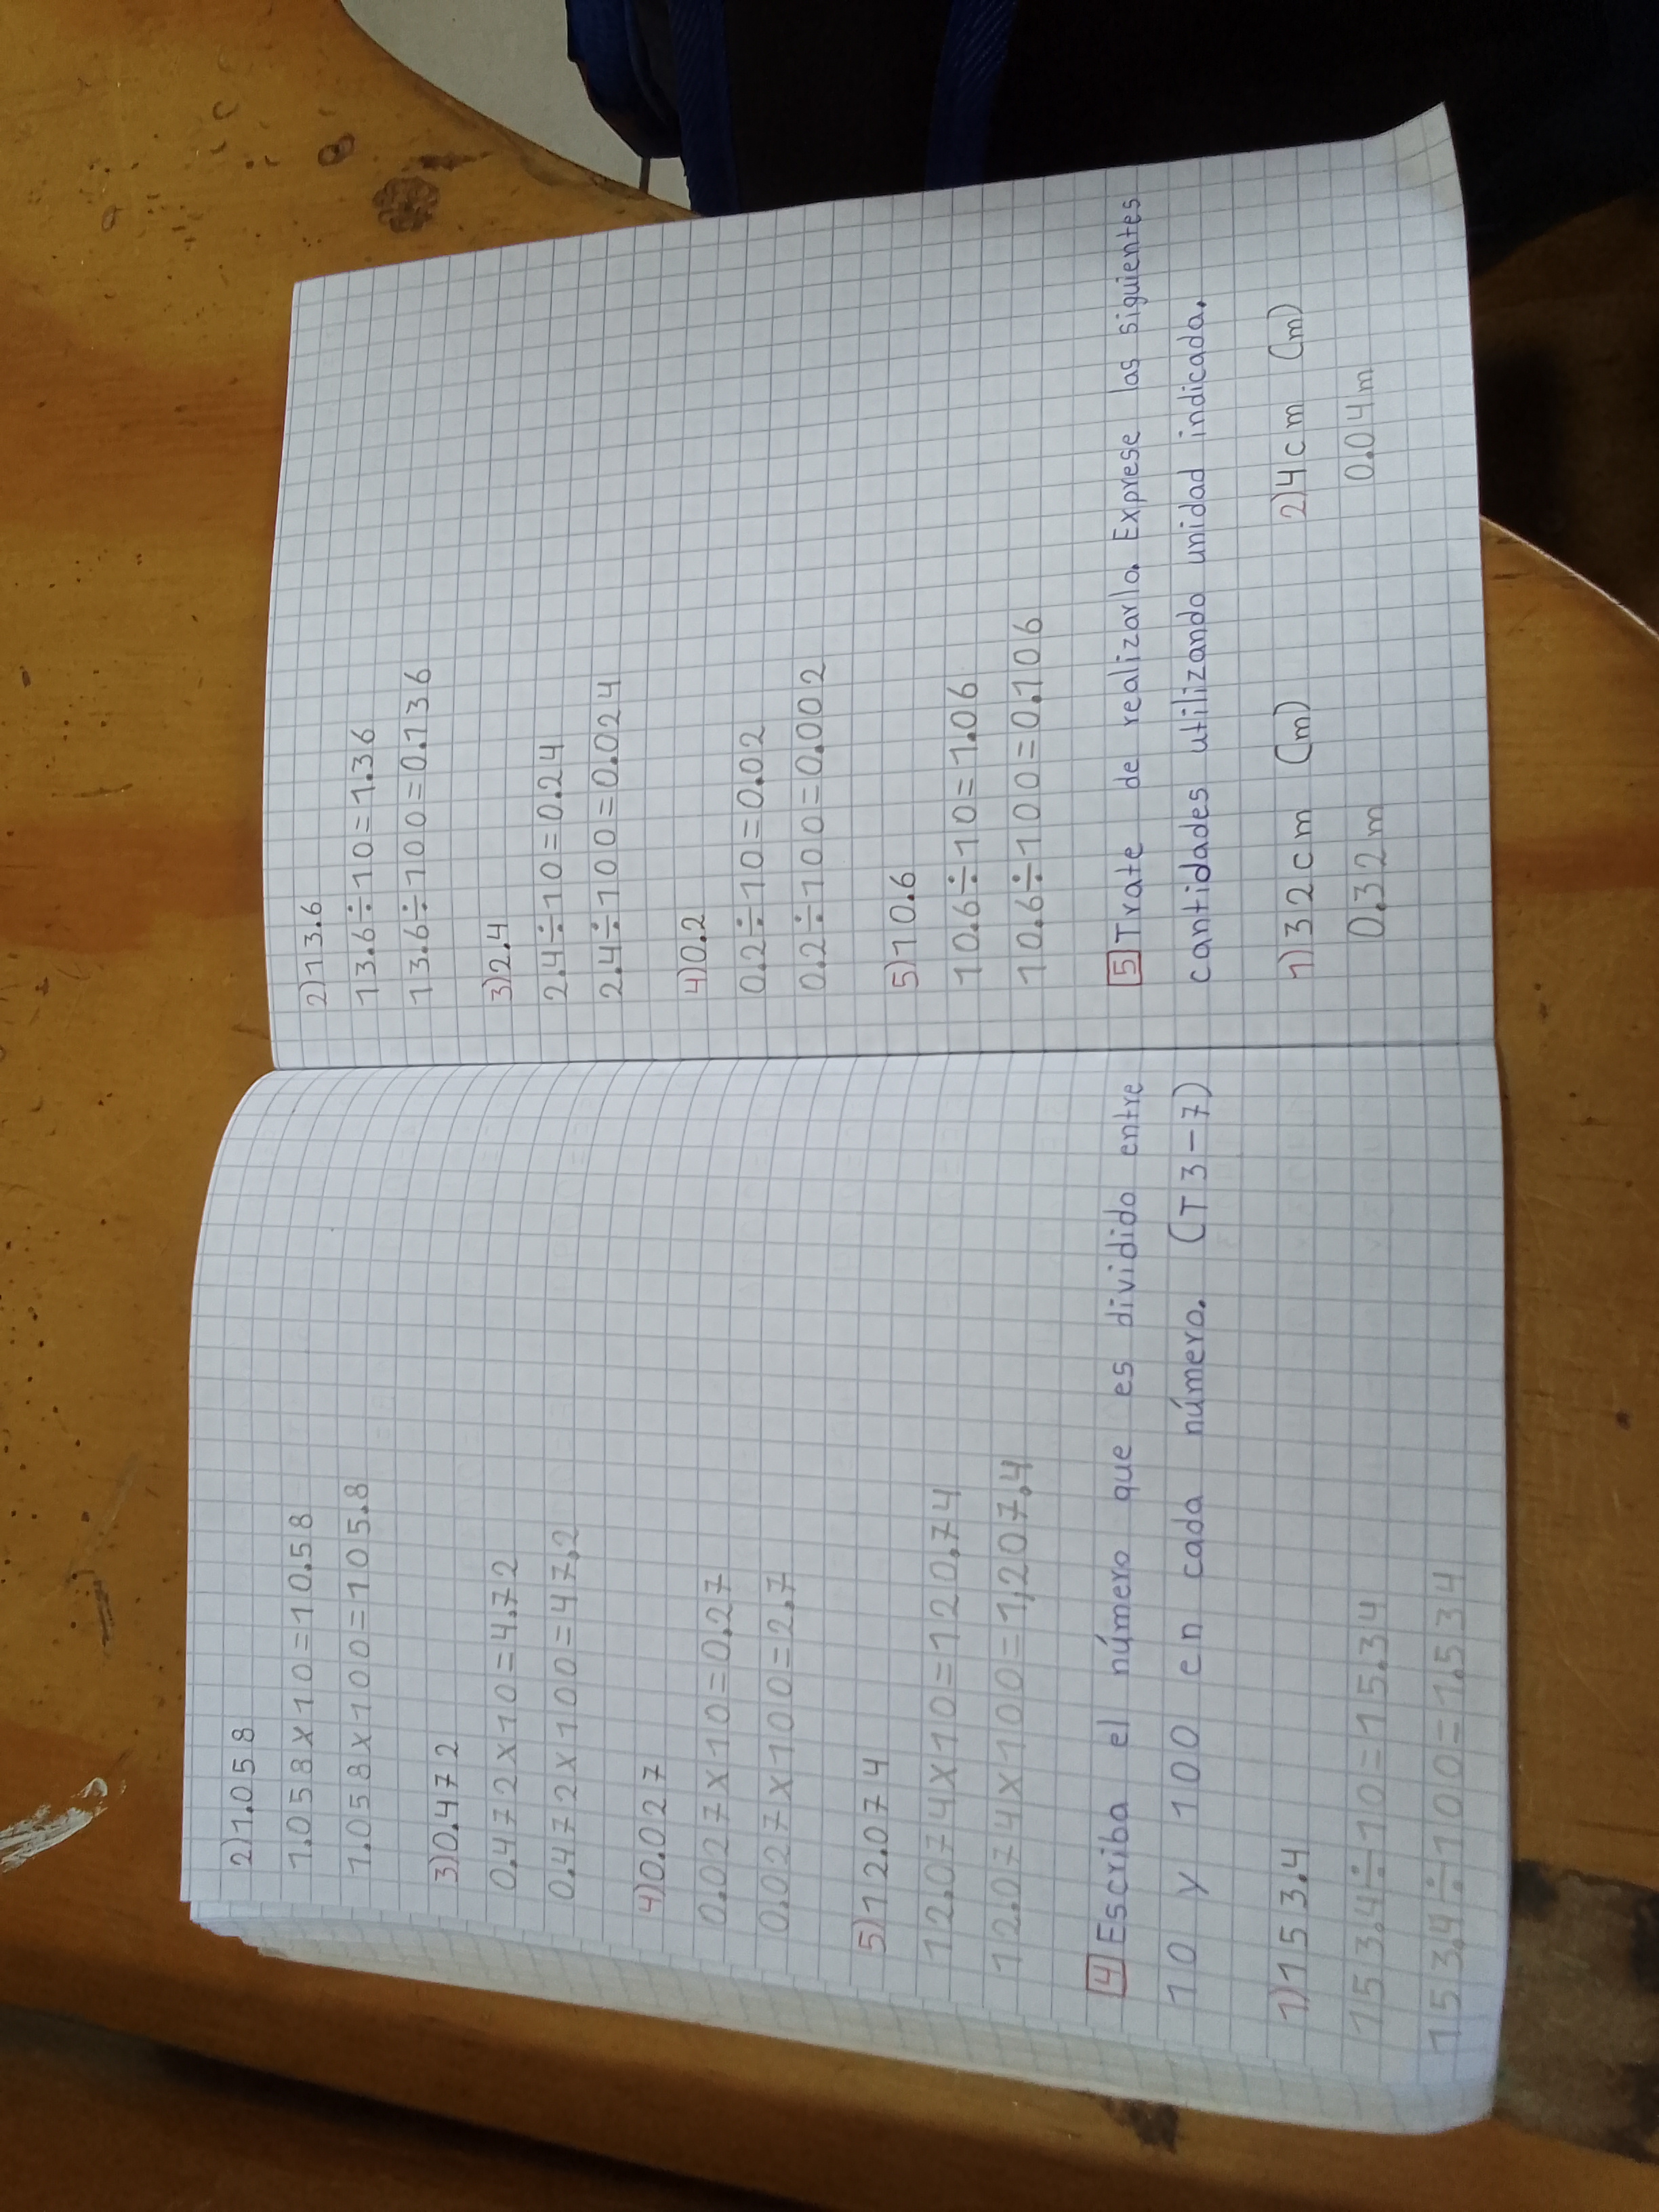 2)1.058
1.058x10=10.58
1.058x100=105.8
3)0.472
0.472x10=4.72
0.472x100=47.2
4)0.027
0.027x10=0.27
0.027x100=2.7
5)12.074
12.074x10=120.74
12.074x100=1,207.4
4 Escriba el número que es dividido entre
10 y 100 en cada número. (T3-7)
1)153.4
153.4÷10=15.34
153.4÷100=1.534
2)13.6
13.6÷10=1.36
13.6÷100=0.136
3)2.4
2.4÷10=0.24
2.4÷100=0.024
4)0.2
0.2÷10=0.02
0.2÷100=0.002
5)10.6
10.6÷10=1.06
10.6÷100=0.106
5 Trate de realizarlo. Exprese las siguientes
cantidades utilizando unidad indicada.
1)32cm (m) 2)4cm (m)
0.32m 0.04m